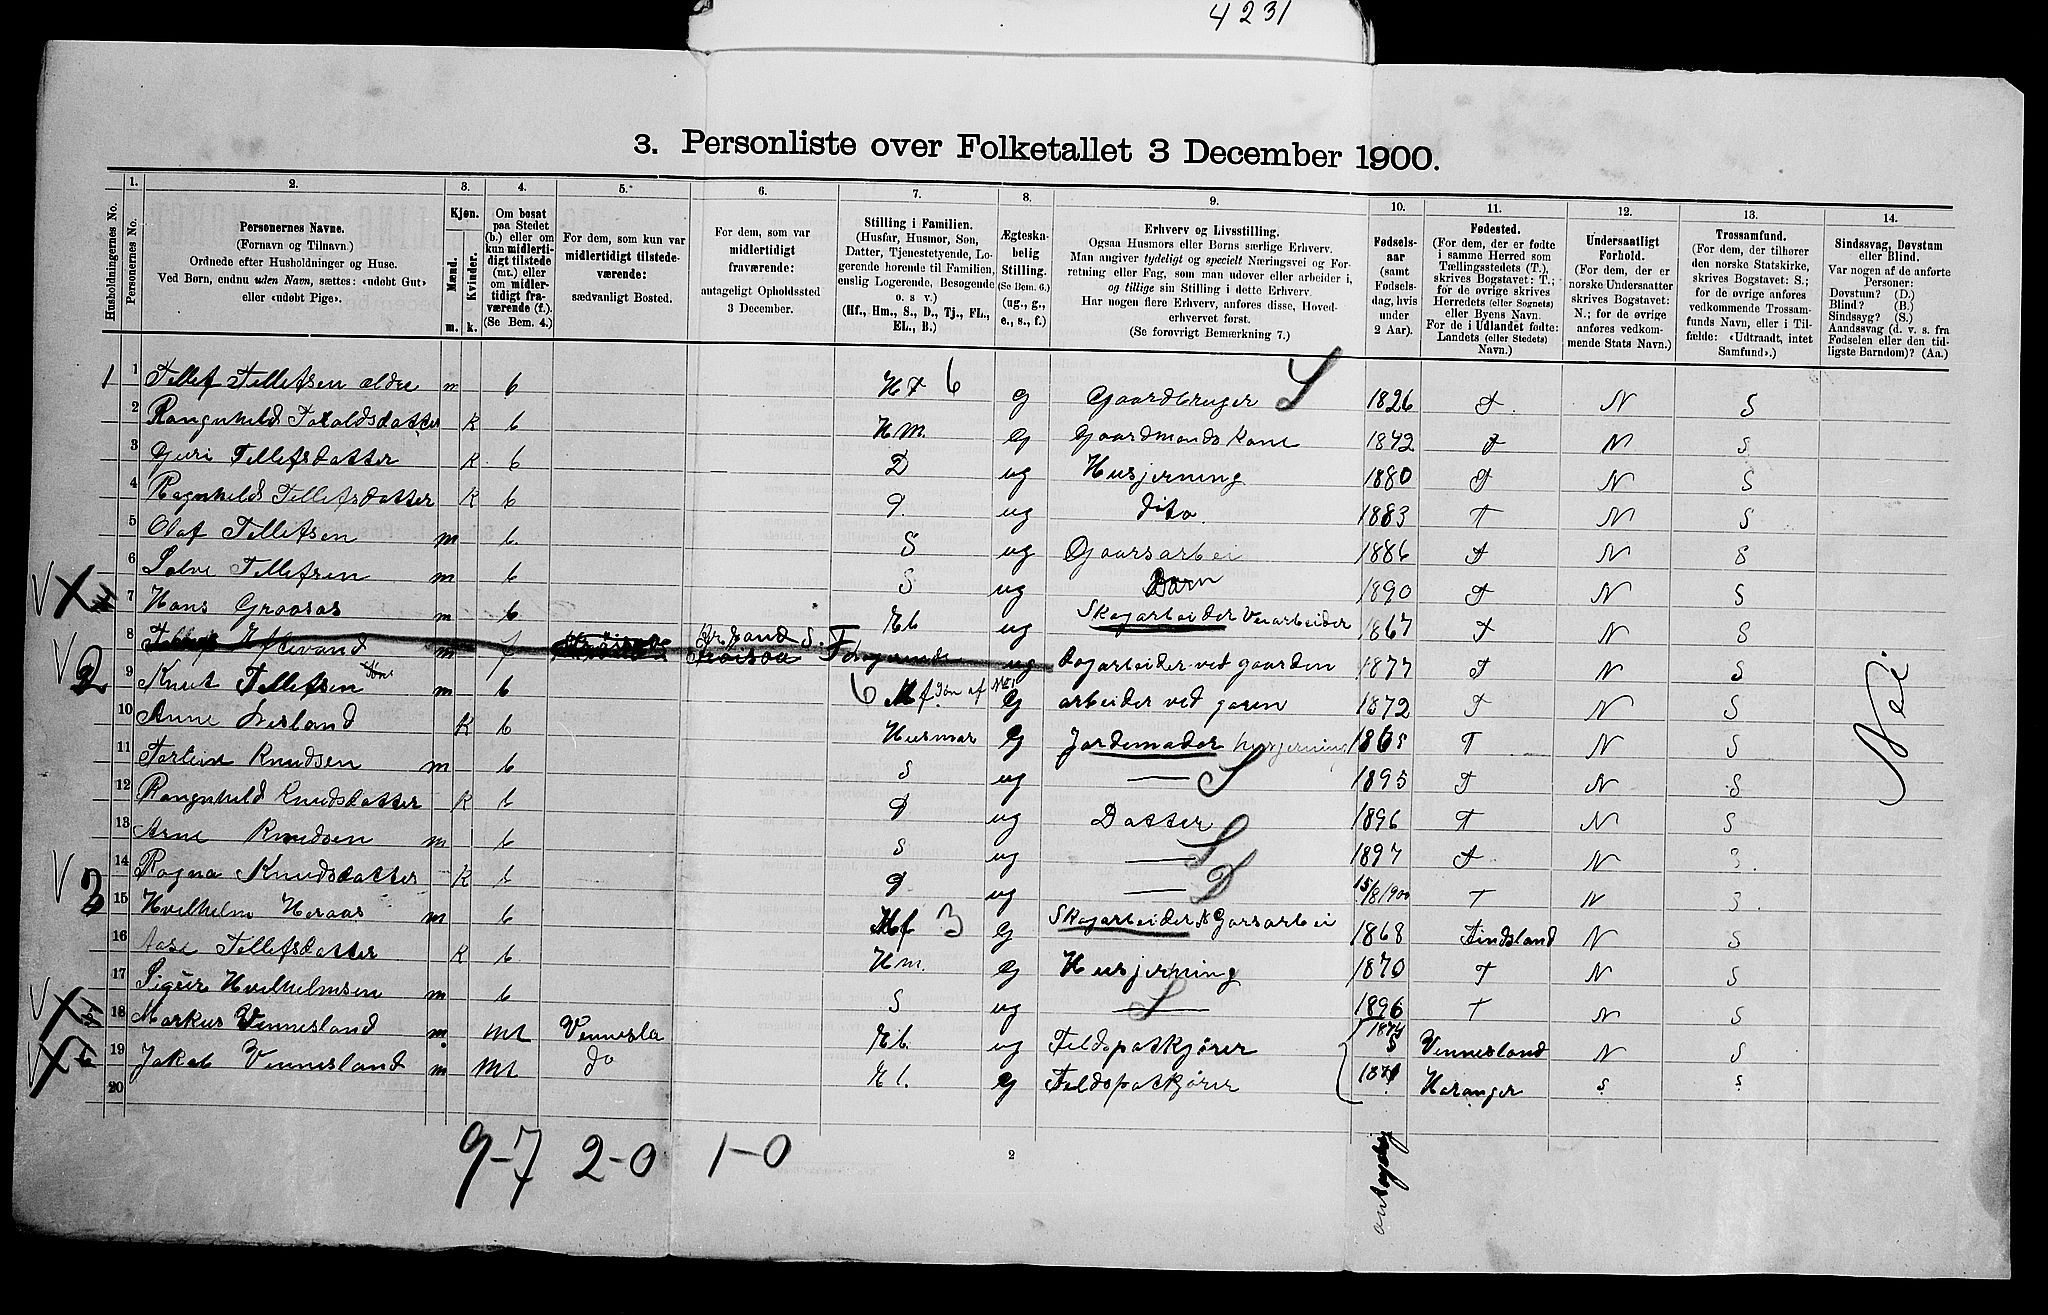 4231
3. Personliste over Folketallet 3 December 1900.
Husholdningernes No.
1.
Personernes No.
2.
Personernes Navne.
(Fornavn og Tilnavn.)
Ordnede efter Husholdninger og Huse.
Ved Børn, endnu uden Navn, sættes: «udøbt Gut»
eller «udøbt Pige».
3.
Kjøn.
Mænd.
Kvinder.
m.
k.
4.
Om bosat
paa Stedet
(b.) eller om
kun midlerti-
digt tilstede
(mt.) eller
om midler-
tidigt fra-
værende (f.).
(Se Bem. 4.)
5.
For dem, som kun var
midlertidigt tilstede-
værende:
sædvanligt Bosted.
6.
For dem, som var
midlertidigt
fraværende:
antageligt Opholdssted
3 December.
7.
Stilling i Familien.
(Husfar, Husmor, Søn,
Datter, Tjenestetyende, Lo-
gerende hørende til Familien,
enslig Logerende, Besøgende
o. s v.)
(Hf., Hm., S., D., Tj., FL.,
EL., B.)
8.
Ægteska-
belig
Stilling.
(Se Bem. 6.)
(ug., g.,
e., s., f.)
9.
Erhverv og Livsstilling.
Ogsaa Husmors eller Børns særlige Erhverv.
Man angiver tydeligt og specielt Næringsvei og For-
retning eller Fag, som man udøver eller arbeider i,
og tillige sin Stilling i dette Erhverv.
Har nogen flere Erhverv, anføres disse, Hoved-
erhvervet først.
(Se forøvrigt Bemærkning 7.)
10.
Fødsels-
aar
(samt
Fødsels-
dag, hvis
under
2 Aar).
11.
Fødested.
(For dem, der er fødte
i samme Herred som
Tællingsstedets (T.),
skrives Bogstavet: T.;
for de øvrige skrives
Herredets (eller Sognets)
eller Byens Navn.
For de i Udlandet fødte:
Landets (eller Stedets)
Navn.)
12.
Undersaatligt
Forhold.
(For dem, der er
norske Undersaatter
skrives Bogstavet:
N.; for de øvrige
anføres vedkom-
mende Stats Navn.)
13.
Trossamfund.
(For dem, der tilhører
den norske Statskirke,
skrives Bogstavet: S.;
for de øvrige anføres
vedkommende Trossam-
funds Navn, eller i Til-
fælde: «Udtraadt, intet
Samfund».)
14.
Sindssvag, Døvstum
eller Blind.
Var nogen af de anførte
Personer:
Døvstum? (D.)
Blind? (B.)
Sindssyg? (S.)
Aandssvag (d. v. s. fra
Fødselen eller den tid-
ligste Barndom)? (Aa.)
1 1 Tellef Tellefsen ældre m b Hf 6 g Gaardbruger S 1826 T N S
2 Rangnhild Taraldsdatter K b Hm. G Gaardmands Kone 1842 T N S
3 Guri Tellefsdatter K b D ug Husjerning 1880 T N S
4 Ragnhild Tellefsdatter K b D. ug dito. 1883 T N S
5 Olaf Tellefsen m b. S ug Gaarsarbei 1886 T N S
V X 6 Salve Tellefsen m b S ug Barn 1890 T N S
7 Hans Graasas m b. El ug Skogarbeider Veiarbeider 1867 T N S
V 2 8 m f ug dagarbeider ved gaarden 1877 T N S
9 Knut Tellefsen m b 6 Hf. Søn af No 1 G arbeider ved garen 1872 T N S
10 Anne K b Husmor G Jordemoder husjerning 1865 T N S
11 Torlein Knudsen m b S ug — S 1895 T N S
12 Rangnhild Knudsdatter K b D ug Datter 1896 T N S
13 Arne Knudsen m b S ug — S 1897 T N S
V 3 14 Ragna Knudsdatter K b D ug — D 15/8 1900 T N S.
15 Hvilhelm Heraas m b Hf 3 G Skogarbeider & Garsarbei 1868 Findsland N S
16 Aase Tellefsdatter K b Hm. G Husjerning 1870 T N S
17 Sigur Hvilhelmsen m b S ug — S 1896 T N S
V X 18 Markus Vennesland m mt Vennesla El. ug Feldspatkjører 1874 Vennesland N S
V X 19 Jakob Vennesland m mt do El. G Feldspatkjører 1871 Haranger S S
20
Nei
9-7 2-0 1-0
2